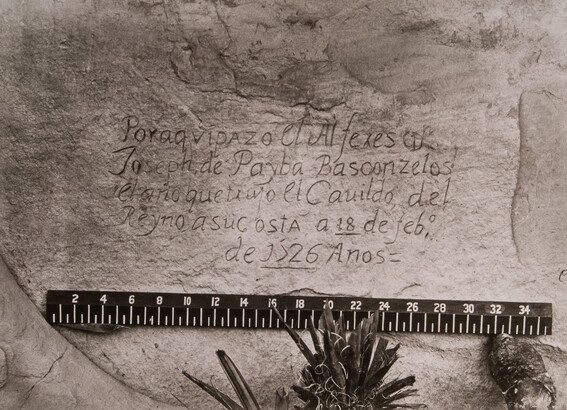 PoraqviPAZO el Alferes Dn
Joseph de Payba Basconzelos
el año que trujo el Cauildo del
Reyno asucosta a 18 de feb.º
de 1526 Años=
2 4 6 8 10 12 14 16 18 20 22 24 26 28 30 32 34